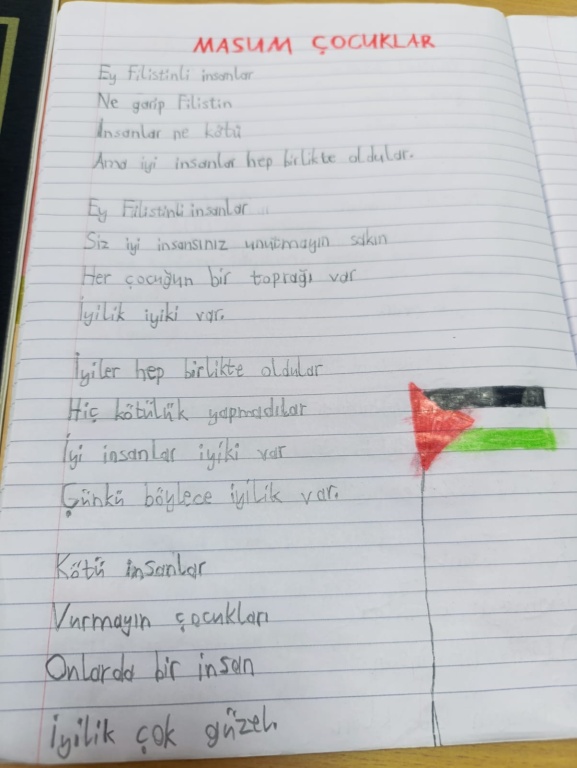 MASUM ÇOCUKLAR
Ey Filistinli insanlar
Ne garip Filistin
İnsanlar ne kötü
Ama iyi insanlar hep birlikte oldular.
Ey Filistinli insanlar
Siz iyi insansınız unutmayın sakın
Her çocuğun bir toprağı var
İyilik iyiki var.
İyiler hep birlikte oldular
Hiç kötülük yapmadılar
İyi insanlar iyiki var
Çünkü böylece iyilik var.
Kötü insanlar
Vurmayın çocukları
Onlarda bir insan
İyilik çok güzel.